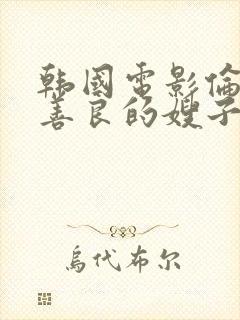 韩國电影倫
善良的嫂子
烏代布尔